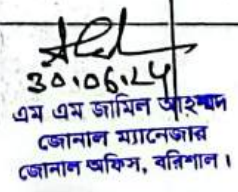 30.06.24
এম এম জামিল আহম্মদ
জোনাল ম্যানেজার
জোনাল অফিস, বরিশাল।